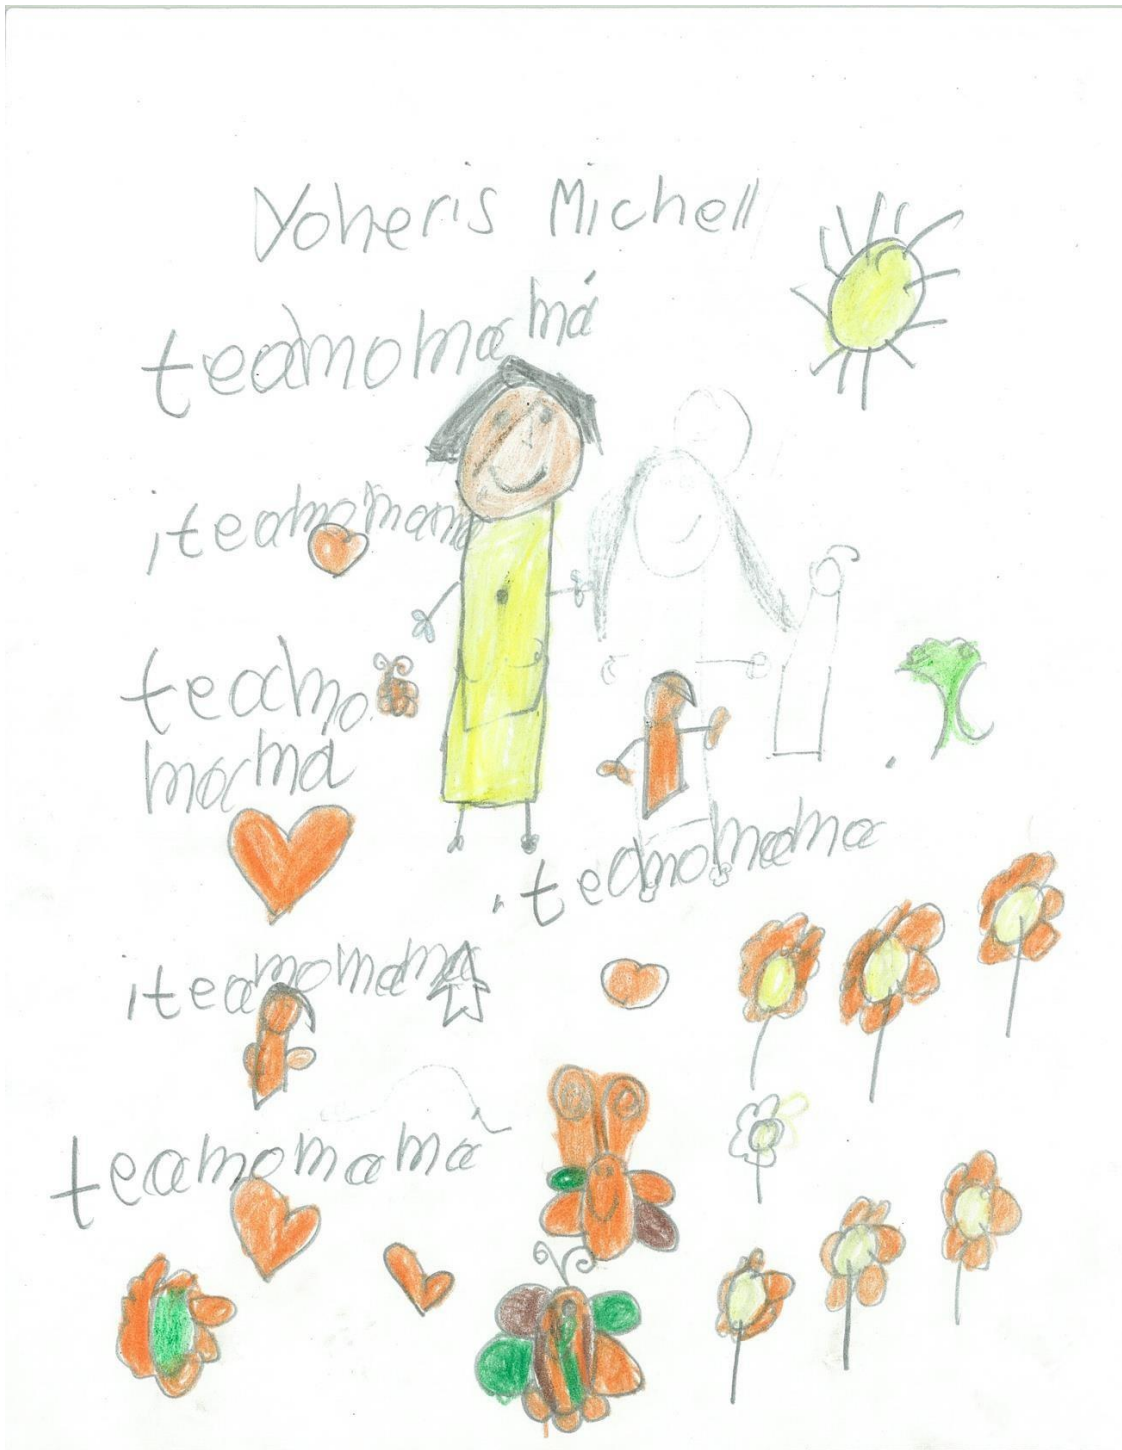 Yoheris Michell
teamomamá
¡teamomama
teamo
mama
¡teamomama
¡teamomama
teamomama